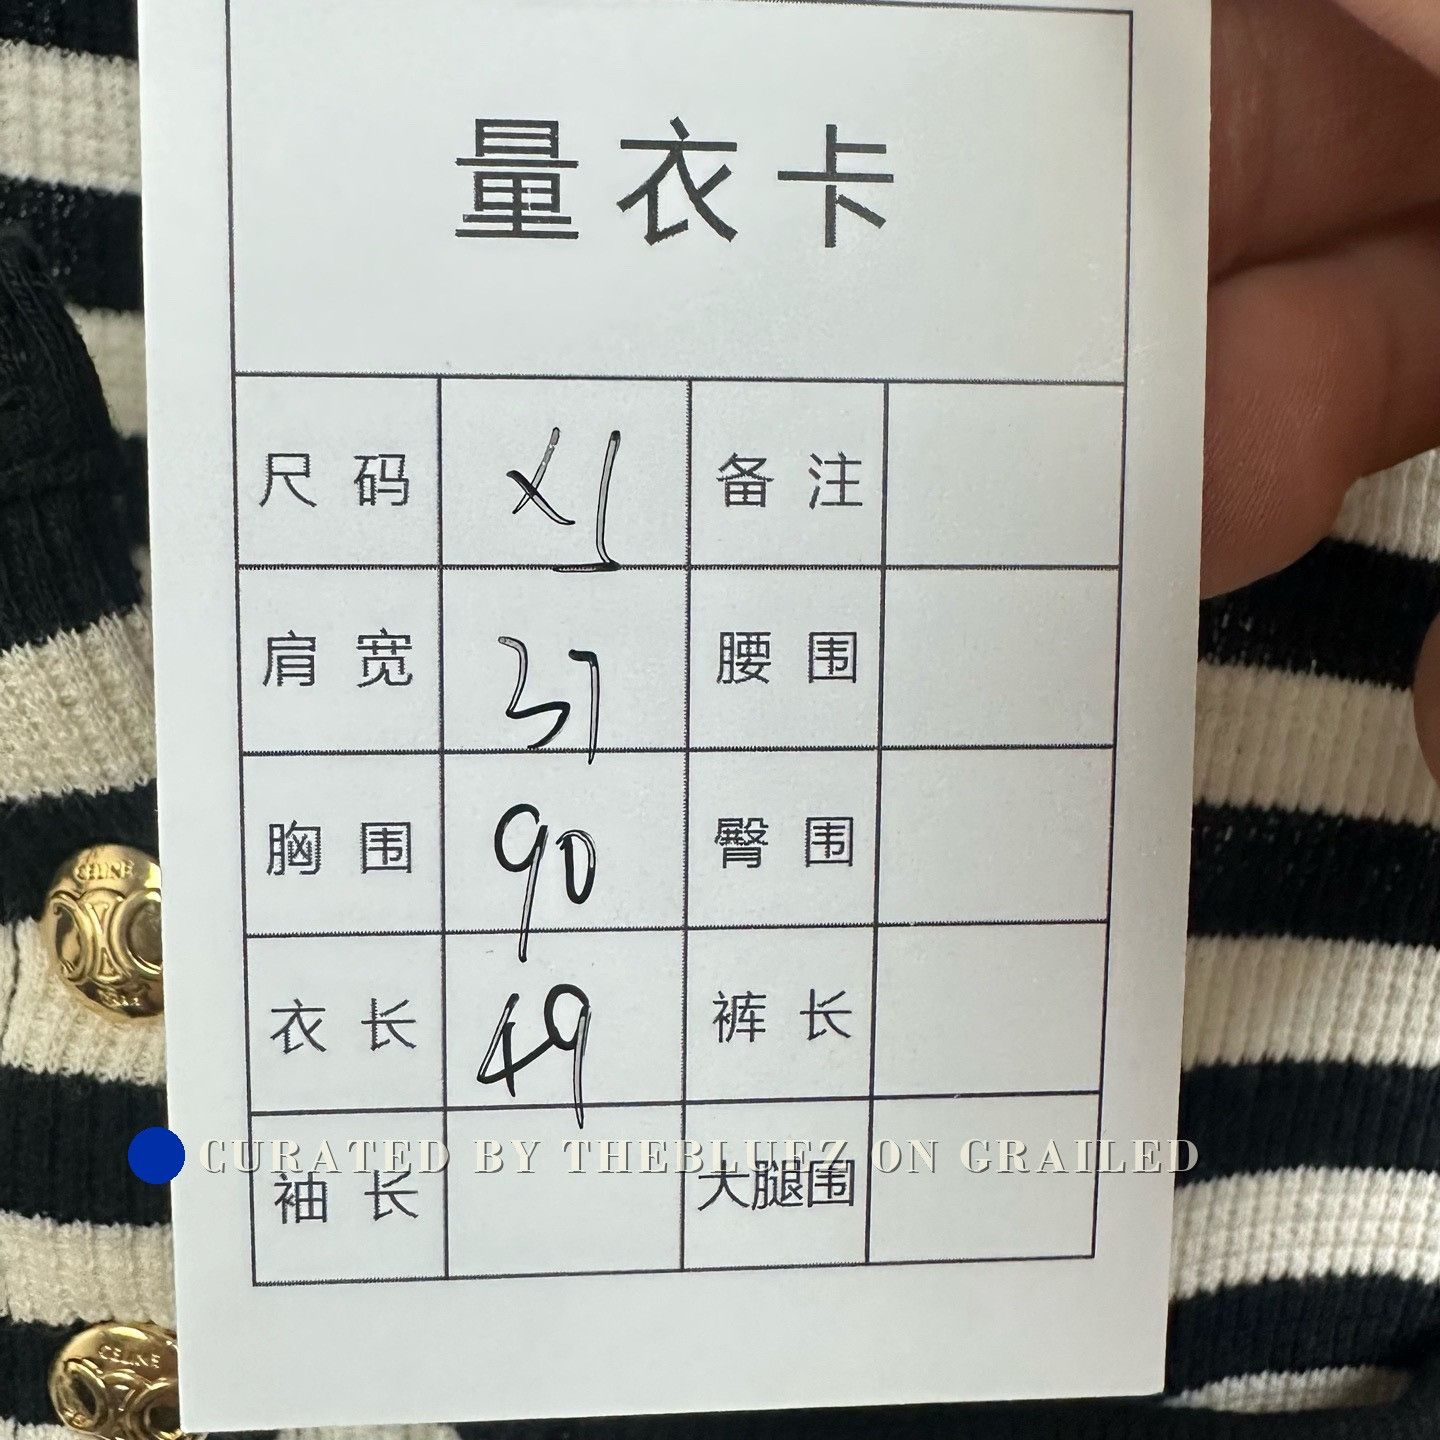 量衣卡
尺码 XL 备注
肩宽 37 腰围
胸围 90 臀围
衣长 49 裤长
CURATED BY THEBLUEZ ON GRAILED
袖长 大腿围
CELINE
CELINE